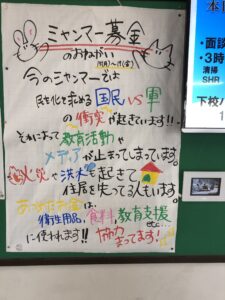 ミャンマー募金
のおねがい
今のミャンマーでは
民主化を求める国民VS軍
の衝突が起きています!!
それによって教育活動や
メディアが止まってしまっています。
火災や洪水も起きて
住居を失ってる人もいます。
あつめたお金は、
衛生用品、食料、教育支援
etc...
に使われます!! 協力
まってます!
・面談
・3時
清掃
SHR
下校